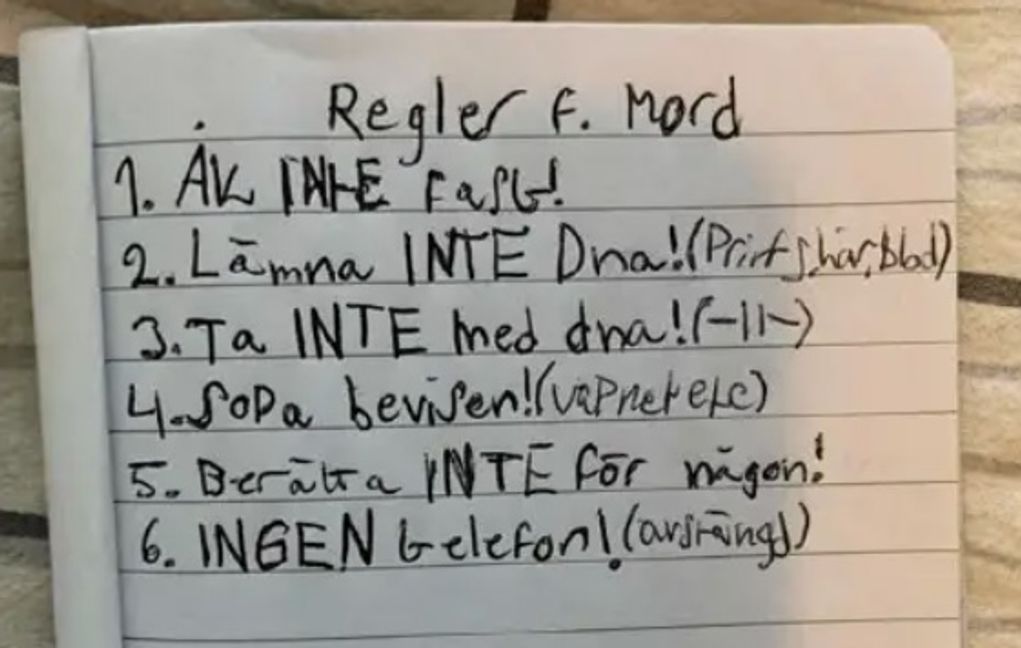 Regler f. Mord
1. ÅK INTE fast!
2. Lämna INTE Dna! (Print, hår, blod)
3. Ta INTE med dna! (-11-)
4. Sopa bevisen! (vapnet etc)
5. Berätta INTE för någon!
6. INGEN telefon! (avstängd)